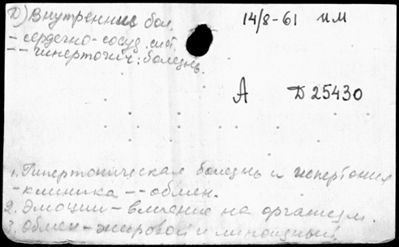 2) Внутренние бол. 14/8-61 им
- сердечно-сосуд. сист.
-- гипертонич. болезнь.
А Д 25430
1. Гипертоническая болезнь и гипертония
- клиника -- обмен.
2. Эмоции - влияние на организм.
3. Обмен - жировой и липоидный